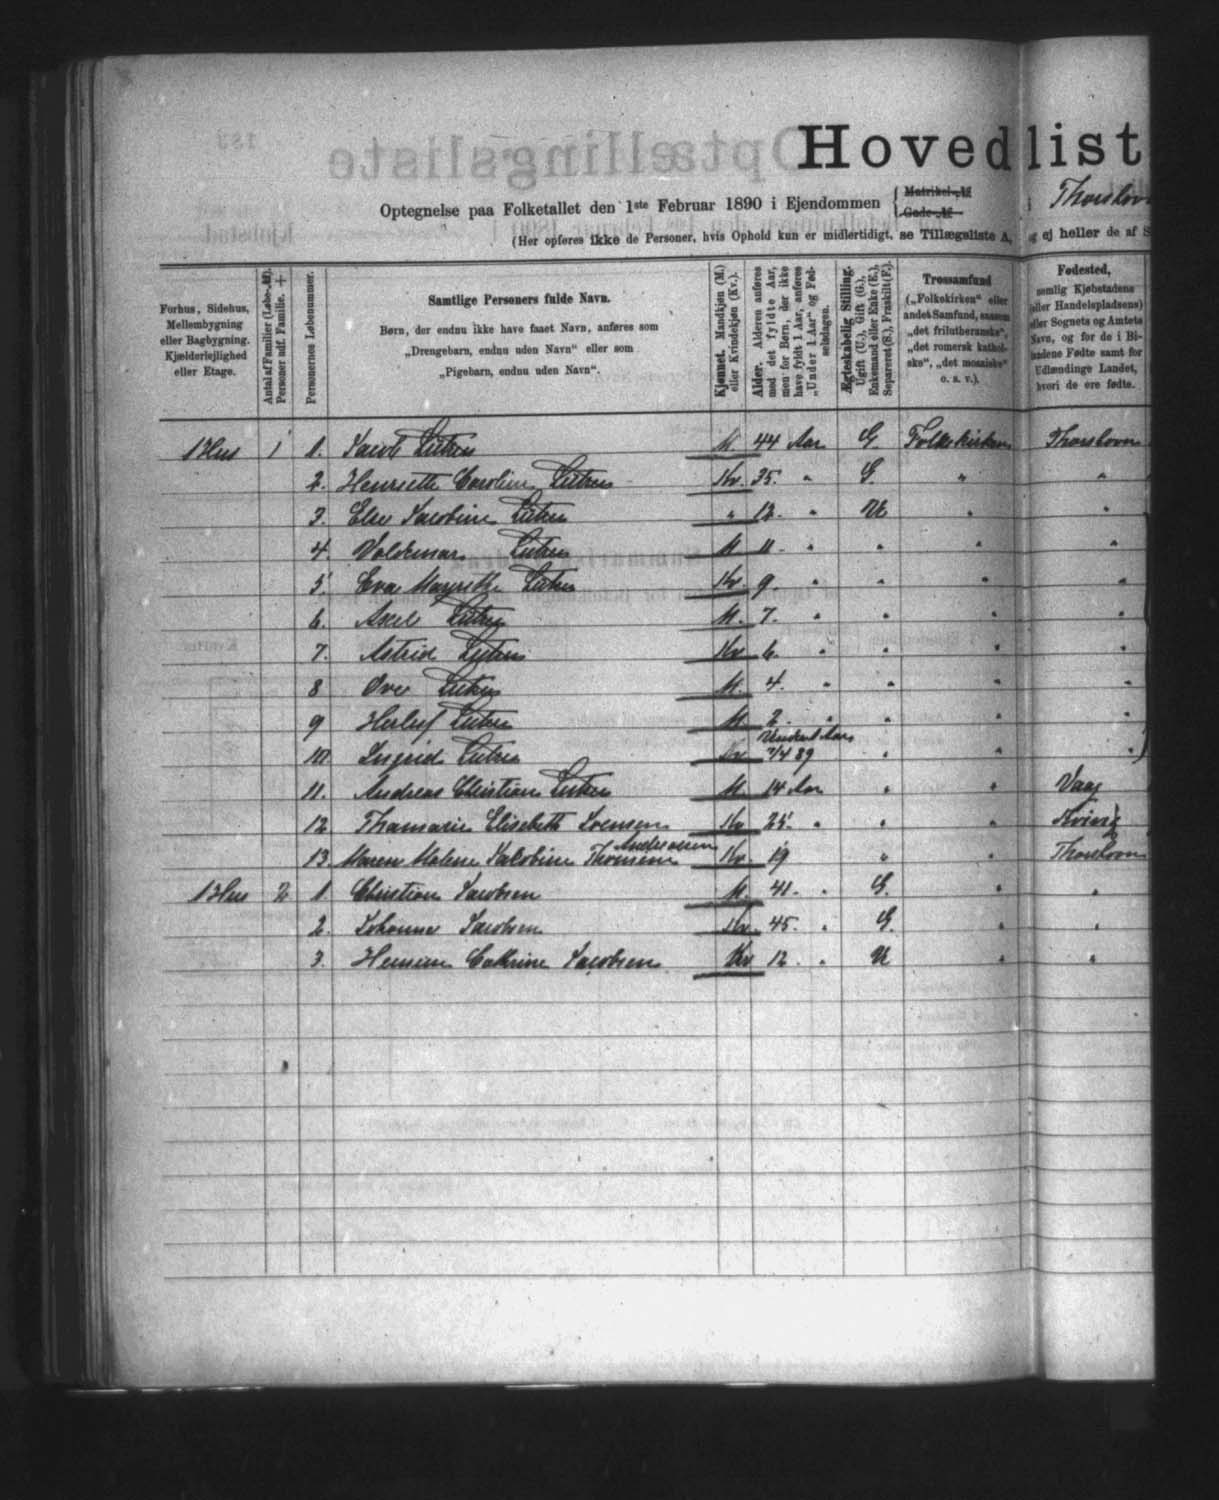 Hovedlist
Optegnelse paa Folketallet den 1ste Februar 1890 i Ejendommen { Matrikel-№ Gade-№ i Thorshavn
(Her opføres ikke de Personer, hvis Ophold kun er midlertidigt, se Tillægsliste A, og ej heller de af S
Forhus, Sidehus, Mellembygning eller Bagbygning. Kjælderlejlighed eller Etage.
Antal af Familier (Løbe-№). Personer adf. Familie. +
Personernes Løbenummer.
Samtlige Personers fulde Navn.
Børn, der endnu ikke have faaet Navn, anføres som
„Drengebarn, endnu uden Navn“ eller som
„Pigebarn, endnu uden Navn“.
Kjønnet. Mandkjøn (M.) eller Kvindekjøn (Kv.).
Alder. Alderen anføres med det fyldte Aar, men for Børn, der ikke have fyldt 1 Aar, anføres „Under 1 Aar“ og Fødselsdagen.
Ægteskabelig Stilling. Ugift (U.), Gift (G.), Enkemand eller Enke (E.), Separeret (S.), Fraskilt (F.).
Trossamfund („Folkekirken“ eller andet Samfund, saasom „det frilutheranske“, „det romersk katholske“, „det mosaiske“ o. s. v.).
Fødested, nemlig Kjøbstadens eller Handelspladsens) eller Sognets og Amtets Navn, og for de i Bilandene Fødte samt for Udlændinge Landet, hvori de ere fødte.
1 Hus 1 1. Jacob Lützen M. 44 Aar G Folkekirken Thorshavn
2. Henriette Caroline Lützen Kv. 35. " G. " "
3. Else Jacobine Lützen " 12. " U " "
4. Valdemar Lützen M 11. " " " "
5. Eva Margrethe Lützen Kv. 9. " " " "
6. Axel Lützen M. 7. " " " "
7. Astrid Lützen Kv 6. " " " "
8 Ove Lützen M. 4. " " " "
9 Herluf Lützen M 2. " " " "
10 Ingrid Lützen Kv Under 1 Aar /4 89 " " "
11. Andreas Christian Lützen M. 14 Aar " " Vaag
12 Thamarie Elisabeth Joensen Kv 25. " " " Kvivig
13. Maren Malene Jacobine Thomsen Andreasen Kv. 19 " " Thorshavn
1 Hus 2 1. Christian Jacobsen M. 41. " G. " "
2. Johanne Jacobsen Kv. 45. " G. " "
3. Hansine Cathrine Jacobsen Kv 12. " U " "